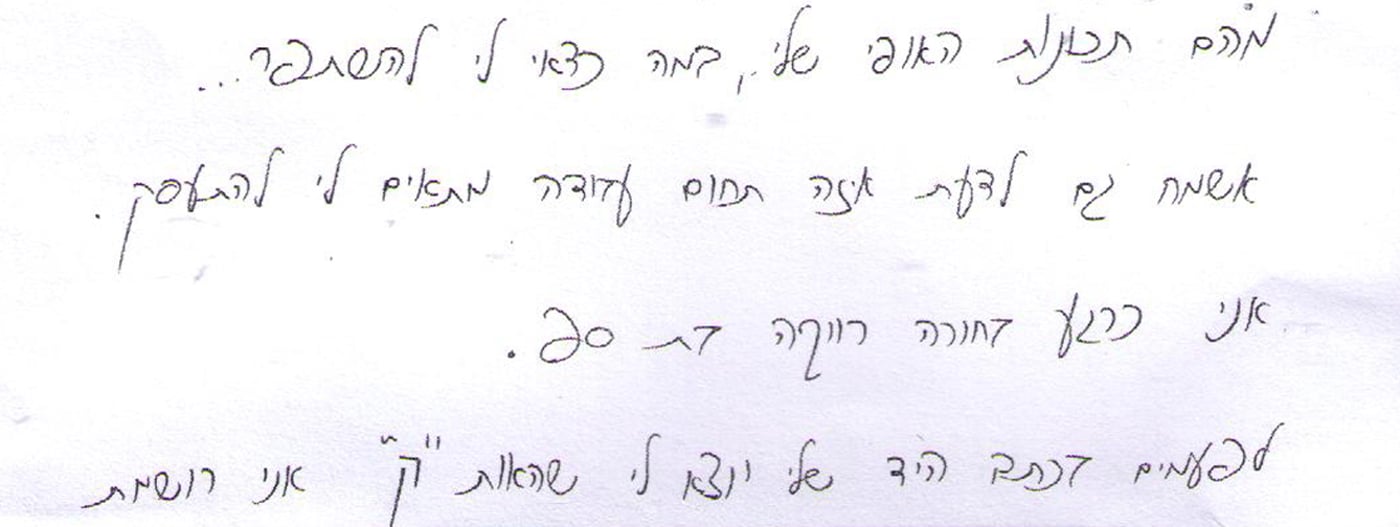 מהם תכונות האופי שלי, במה כדאי לי להשתפר...
אשמח גם לדעת איזה תחום עבודה מתאים לי להתעסק.
אני כרגע בחורה רווקה בת
לפעמים בכתב היד שלי יוצא לי שהאות "ק" אני רושמת